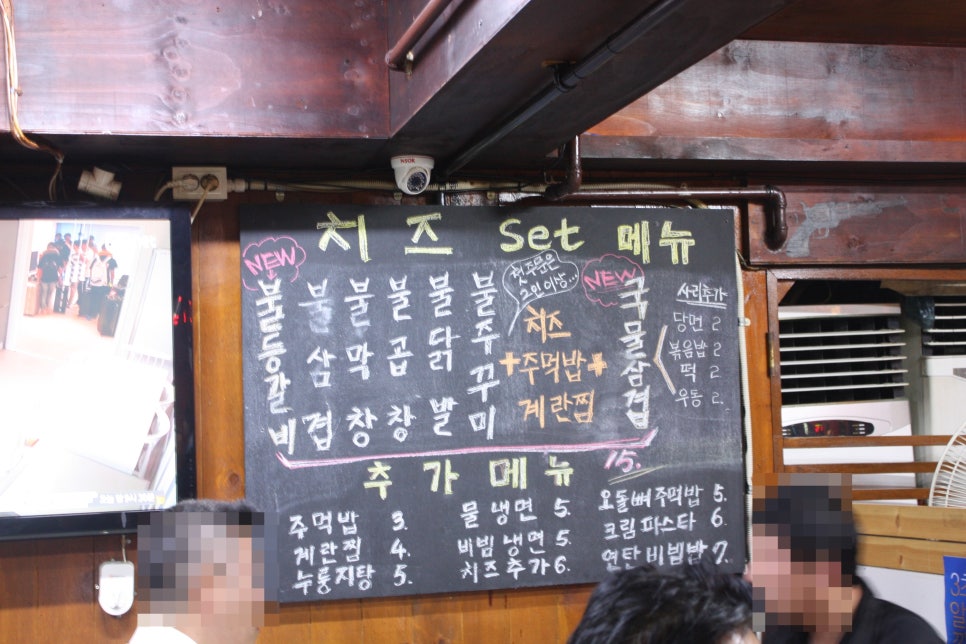 치즈 Set 메뉴
NEW
불등갈비
불삼겹
불막창
불곱창
불닭발
불주꾸미
첫주문은
2인이상...
치즈
+주먹밥+
계란찜
NEW
국물삼겹
사리추가
당면 2
볶음밥 2
떡 2
우동 2.
15.
추가메뉴
주먹밥 3.
계란찜 4.
누룽지탕 5.
물냉면 5.
비빔냉면 5.
치즈추가 6.
오돌뼈주먹밥 5.
크림파스타 6.
연탄비빔밥 7.